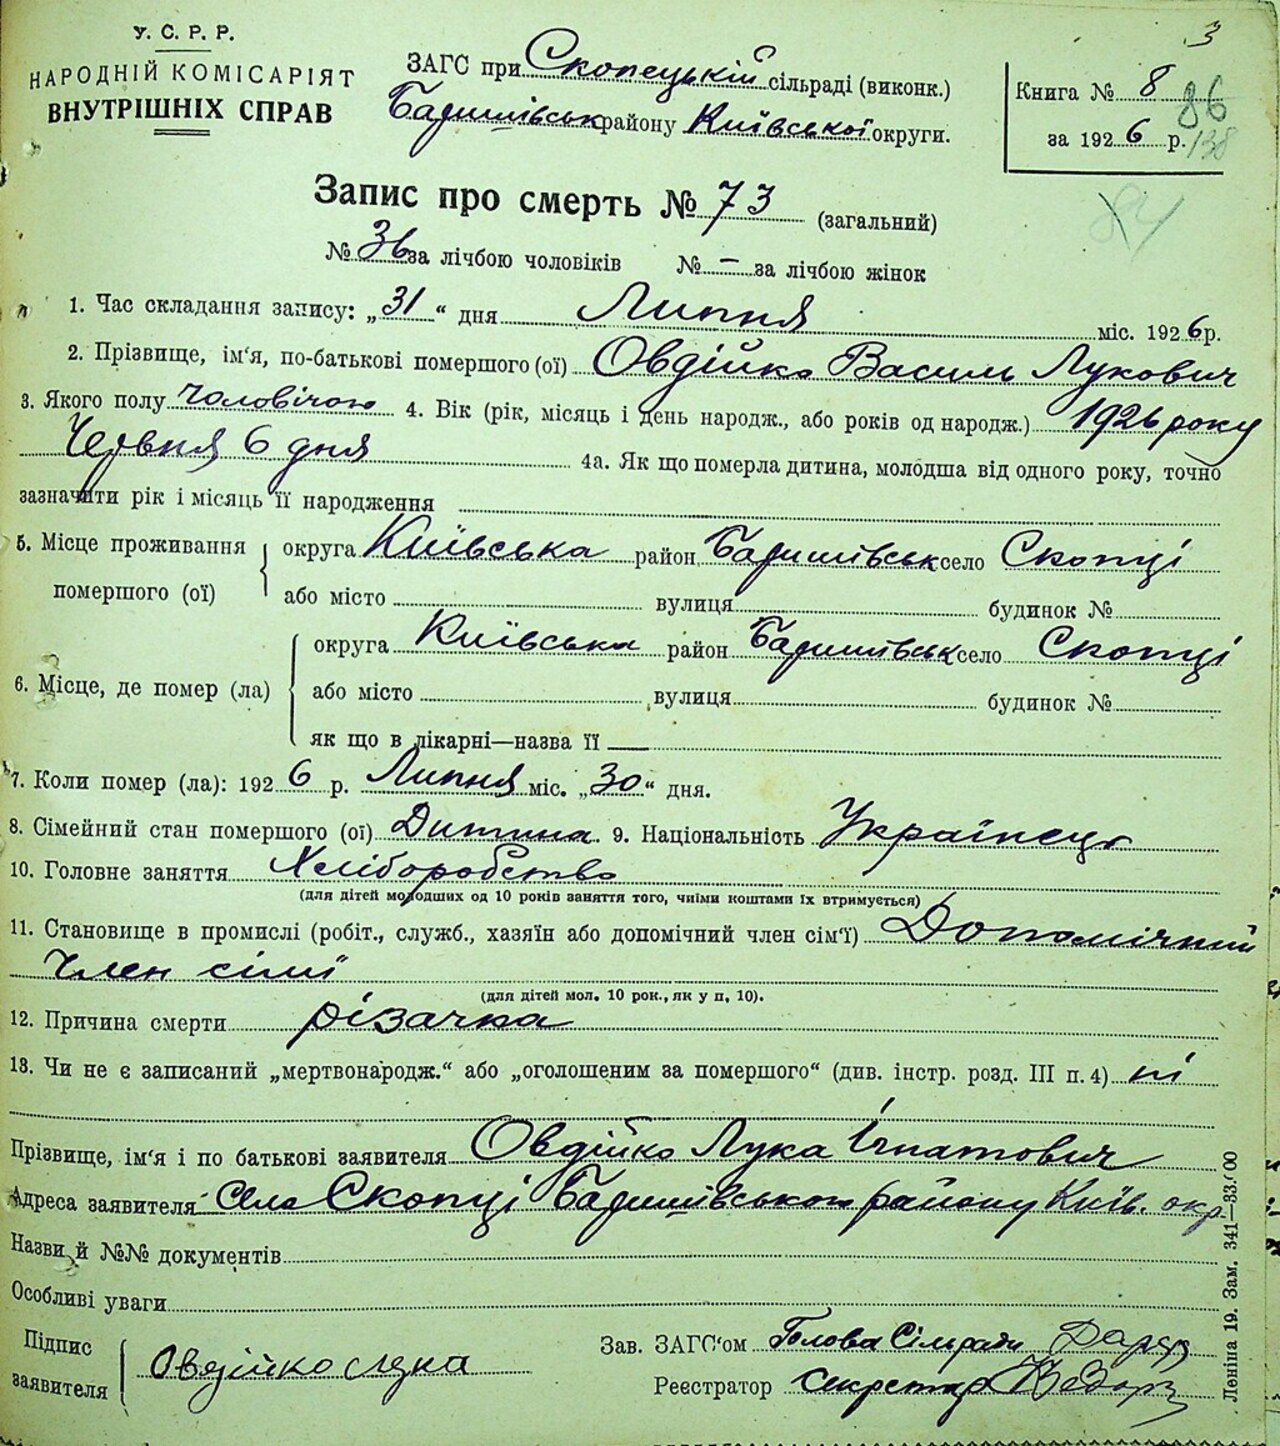 3
У. С. Р. Р.
НАРОДНІЙ КОМІСАРІЯТ
ВНУТРІШНІХ СПРАВ
ЗАГС при Скопецькій сільраді (виконк.)
Баришівськ району Київської округи.
Книга № 8
86
за 1926 р.
138
84
Запис про смерть № 73 (загальний)
№ 36 за лічбою чоловіків № – за лічбою жінок
1. Час складання запису: „31“ дня Липня міс. 1926 р.
2. Прізвище, ім‘я, по-батькові помершого (ої) Овдійко Василь Лукович
3. Якого полу чоловічого 4. Вік (рік, місяць і день народж., або років од народж.) 1926 року
Червня 6 дня 4а. Як що померла дитина, молодша від одного року, точно
зазначити рік і місяць її народження
5. Місце проживання помершого (ої) округа Київська район Баришівськ село Скопці
або місто вулиця будинок №
6. Місце, де помер (ла) округа Київська район Баришівськ село Скопці
або місто вулиця будинок №
як що в лікарні—назва її
7. Коли помер (ла): 1926 р. Липня міс. „30“ дня.
8. Сімейний стан помершого (ої) Дитина 9. Національність Українець
10. Головне заняття Хліборобство
(для дітей молодших од 10 років заняття того, чиїми коштами їх втримується)
11. Становище в промислі (робіт., служб., хазяїн або допомічний член сім‘ї) Допомічний
член сімї
(для дітей мол. 10 рок., як у п, 10).
12. Причина смерти різачка
13. Чи не є записаний „мертвонародж.“ або „оголошеним за помершого“ (див. інстр. розд. III п. 4) ні
Прізвище, ім‘я і по батькові заявителя Овдійко Лука Ігнатович
Адреса заявителя Село Скопці Баришівського району Київ. окр.
Назви й №№ документів
Особливі уваги
Підпис заявителя Овдійко лука
Зав. ЗАГС‘ом Голова Сільради
Реєстратор секретар
Леніна 19. Зам. 341—33.000